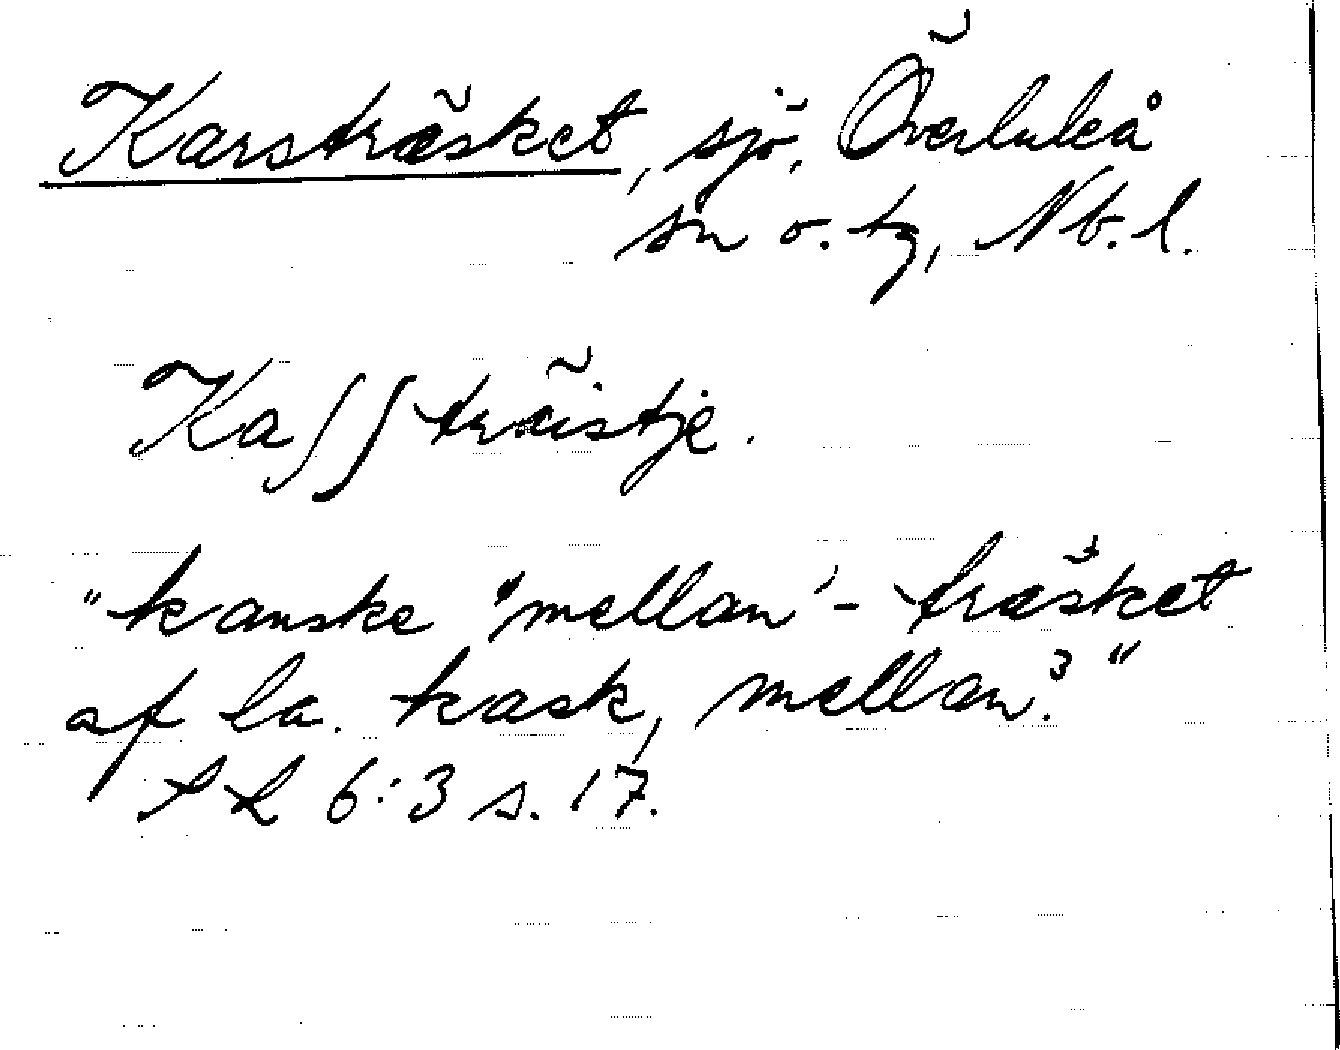 Karsträsket, sjö, Överluleå
sn o. tg, Nb. l.
Kaʃʃträistje.
"kanske 'mellan'- träsket
af la. kask, mellan?"
SL 6:3 s. 17.